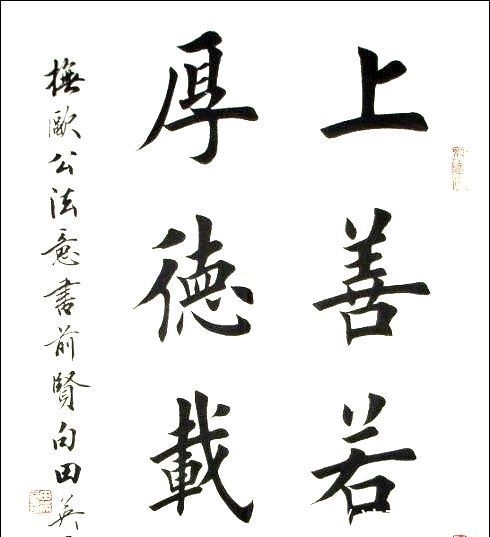 上善若
厚德載
橅歐公法意書前賢句田英